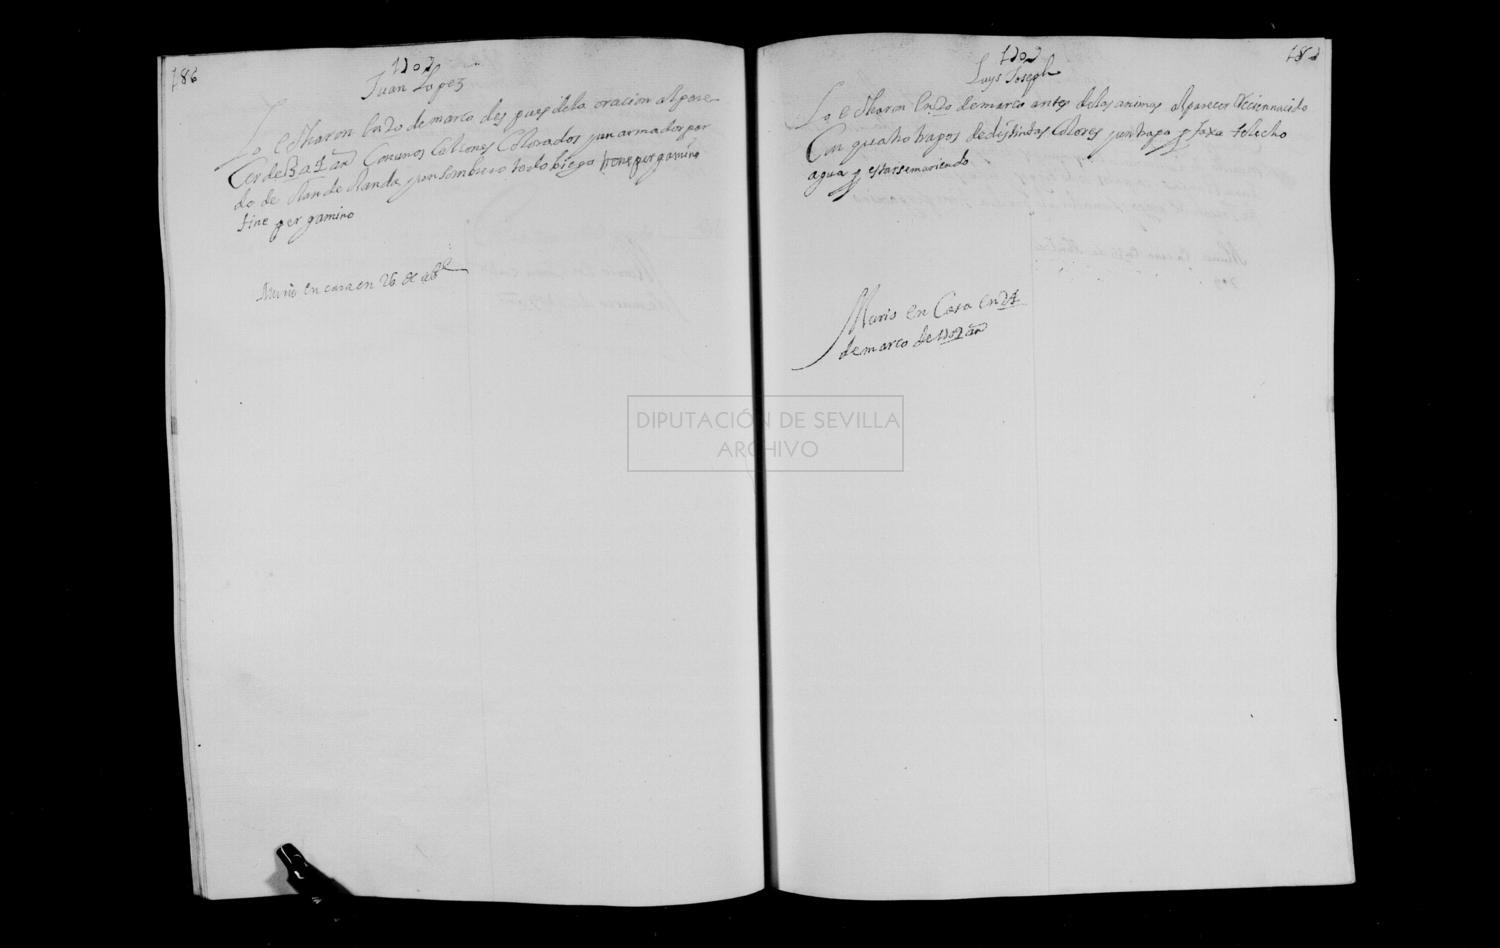 186
1702
Juan Lopez
Lo echaron en 20 de marco des pues de la oracion al pare
cer de 3 a 4 an Con unos Calcones Colorados y un armador par
do de de y un sombrero todo biejo tiene pergamino
tine per gamino
Murio en casa en 26 de abl
1702
Luys Joseph
187
Lo echaron en 20 de marco antes de las animas al parecer Reciennacido
Con quatro trapos de distintas Colores y un trapo y faxa te echo
agua y estarse muriendo
Murio en Casa en 24
de marco de 1702 an
DIPUTACIÓN DE SEVILLA
ARCHIVO